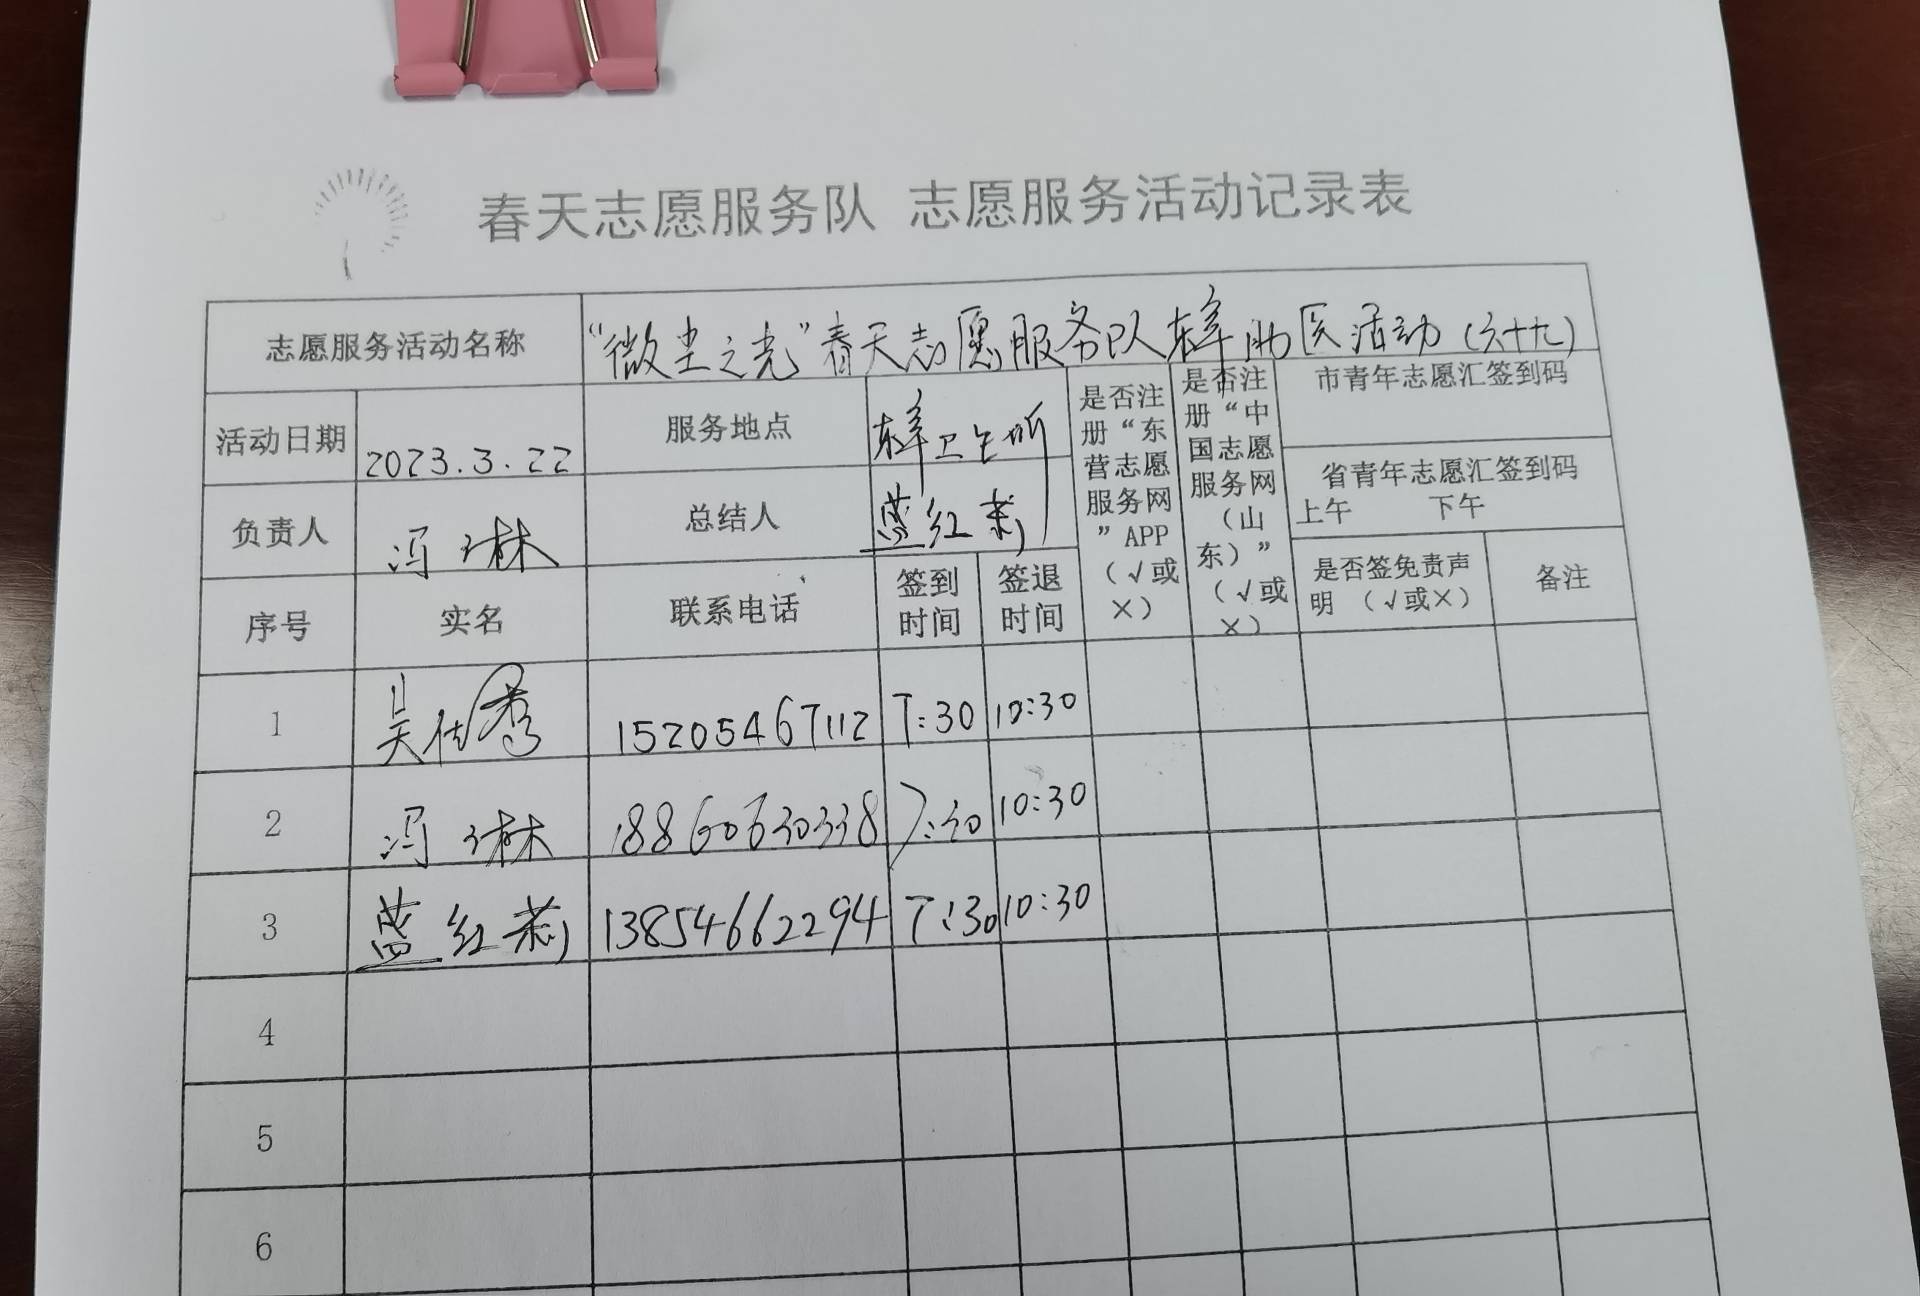 春天志愿服务队 志愿服务活动记录表
志愿服务活动名称 “微尘之光”春天志愿服务队东辛助医活动(六十九)
活动日期 2023.3.22 服务地点 东辛卫生所
负责人 冯琳 总结人 蓝红莉
是否注册“东营志愿服务网”APP(√或×)
是否注册“中国志愿服务网(山东)”(√或×)
市青年志愿汇签到码
省青年志愿汇签到码
上午 下午
序号 实名 联系电话 签到时间 签退时间 是否签免责声明 (√或×) 备注
1 吴佳秀 15205467112 7:30 10:30
2 冯琳 18860630338 7:30 10:30
3 蓝红莉 13854662294 7:30 10:30
4
5
6